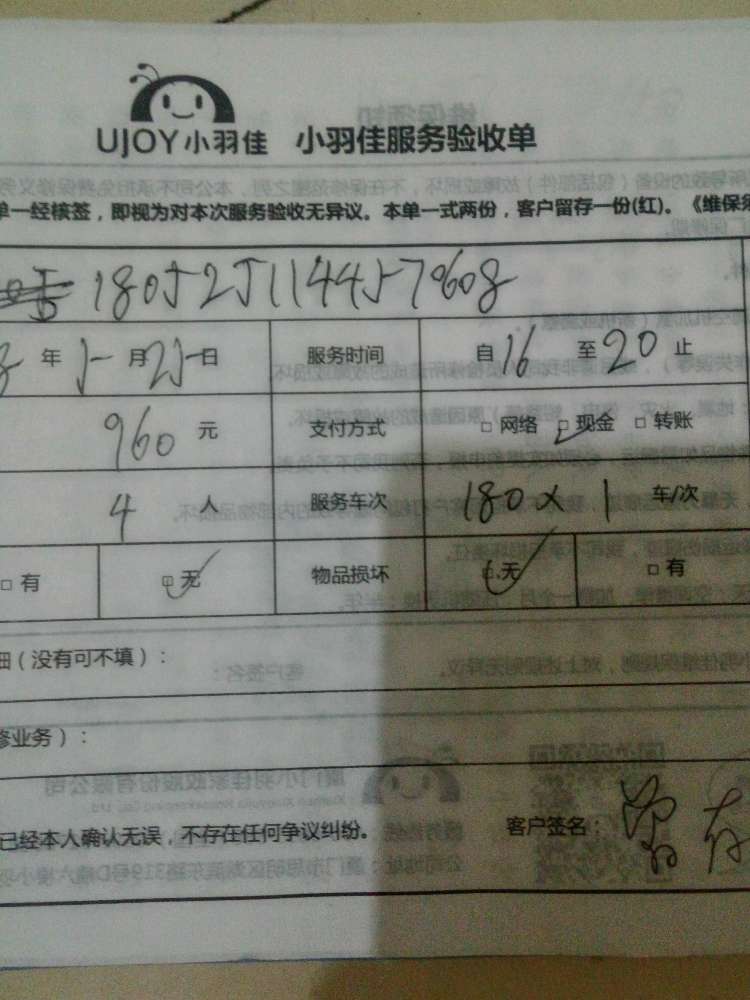 UJOY小羽佳 小羽佳服务验收单
单一经核签，即视为对本次服务验收无异议。本单一式两份，客户留存一份(红)。《维保须
1805251144570608
年 5 月 25 日 服务时间 自 16 至 20 止
960 元 支付方式 □ 网络 □ 现金 □ 转账
4 人 服务车次 180 × 1 车/次
□ 有 □ 无 物品损坏 □ 无 □ 有
细（没有可不填）：
修业务）：
已经本人确认无误，不存在任何争议纠纷。 客户签名：